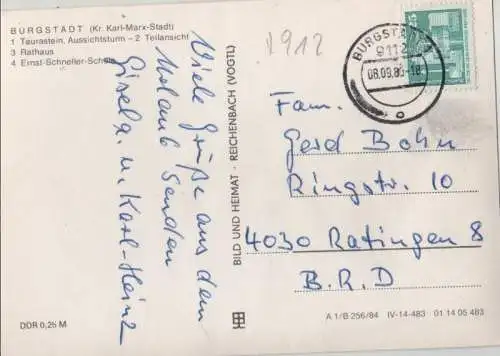 BURGSTÄDT (Kr. Karl-Marx-Stadt)
1 Taurastein, Aussichtsturm – 2 Teilansicht
3 Rathaus
4 Ernst-Schneller-Schule
Viele Grüße aus dem
Urlaub senden
Gisela u. Karl-Heinz
DDR 0,25 M
BILD UND HEIMAT · REICHENBACH (VOGTL)
V912
BURGSTÄDT 1
9112
08.09.86-18
Fam.
Gerd Bohn
Ringstr. 10
4030 Ratingen 8
B.R.D
A 1/B 256/84 IV-14-483 01 14 05 483